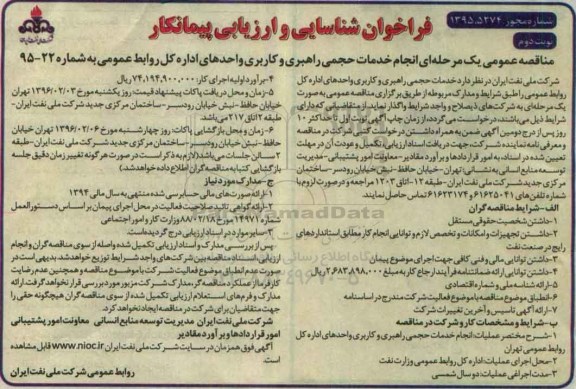 شماره مجوز ۱۳۹۵.۵۲۷۴
نوبت دوم
فراخوان شناسایی و ارزیابی پیمانکار
مناقصه عمومی یک مرحله‌ای انجام خدمات حجمی راهبری و کاربری واحدهای اداره کل روابط عمومی به شماره ۲۲-۹۵
شرکت ملی نفت ایران در نظر دارد خدمات حجمی راهبری و کاربری واحدهای اداره کل
روابط عمومی را طبق شرایط و مدارک مربوطه از طریق برگزاری مناقصه عمومی به صورت
یک مرحله‌ای به شرکت‌های ذیصلاح و واجد شرایط واگذار نماید. از متقاضیانی که دارای
شرایط ذیل می‌باشند، درخواست می‌گردد، از زمان چاپ آگهی نوبت اول تا حداکثر ۱۰
روز پس از درج دومین آگهی ضمن به همراه داشتن درخواست کتبی شرکت در مناقصه
و معرفی نامه نماینده شرکت، جهت دریافت اسناد ارزیابی، تکمیل و عودت آن در مهلت
تعیین شده در اسناد، به امور قراردادها و برآورد مقادیر-معاونت امور پشتیبانی-مدیریت
توسعه منابع انسانی به نشانی: تهران-خیابان حافظ-نبش خیابان رودسر-ساختمان
مرکزی جدید شرکت ملی نفت ایران-طبقه ۱۲-اتاق ۱۲۰۳ مراجعه و در صورت لزوم با
شماره تلفن‌های ۶۱۶۲۵۰۴۱ و ۶۱۶۲۳۱۷۴ تماس حاصل نمایند.
الف-شرایط مناقصه گران
۱-داشتن شخصیت حقوقی مستقل
۲-داشتن تجهیزات و امکانات و تخصص لازم و توانایی انجام کار مطابق استانداردهای
رایج در صنعت نفت
۳-داشتن توانایی مالی و فنی کافی جهت اجرای موضوع پیمان
۴-داشتن توانایی ارائه ضمانتنامه فرآیند ارجاع کار به مبلغ ۲,۶۸۳,۸۹۸,۰۰۰ ریال
۵-ارائه شناسه ملی و شماره اقتصادی
۶-انطباق موضوع مناقصه با موضوع فعالیت شرکت مندرج در اساسنامه
۷-ارائه آگهی تاسیس و آخرین تغییرات شرکت
ب-شرایط و مشخصات کار و شرکت در مناقصه
۱-شرح مختصر عملیات: انجام خدمات حجمی راهبری و کاربری واحدهای اداره کل
روابط عمومی تهران
۲-محل اجرای عملیات: اداره کل روابط عمومی وزارت نفت
۳-مدت اجرای عملیات: دو سال شمسی
۴-برآورد اولیه اجرای کار: ۷۴,۱۹۴,۹۰۰,۰۰۰ ریال
۵-زمان و محل دریافت پاکات پیشنهاد قیمت: روز یکشنبه مورخ ۱۳۹۶/۰۲/۰۳ تهران
خیابان حافظ-نبش خیابان رودسر-ساختمان مرکزی جدید شرکت ملی نفت ایران-
طبقه ۲ اتاق ۲۱۷ می‌باشد.
۶-زمان و محل بازگشایی پاکات: روز چهارشنبه مورخ ۱۳۹۶/۰۲/۰۶ تهران خیابان
حافظ-نبش خیابان رودسر-ساختمان مرکزی جدید شرکت ملی نفت ایران-طبقه
۲ سالن جلسات می‌باشد (لازم به ذکر است در صورت هر گونه تغییر زمان دقیق جلسه
بازگشایی کتبا به مناقصه گران اطلاع داده خواهد شد.)
ج-مدارک مورد نیاز
۱-ارائه صورت‌های مالی حسابرسی شده منتهی به سال مالی ۱۳۹۴
۲-ارائه گواهی تائید صلاحیت فعالیت در محل اجرای پیمان بر اساس دستورالعمل
شماره ۱۴۹۷۱ مورخ ۸۸/۰۲/۱۸ وزارت کار و امور اجتماعی
۳-سایر موارد در اسناد ارزیابی درج گردیده است.
پس از بررسی مدارک و اسناد ارزیابی تکمیل شده واصله از سوی مناقصه گران و انجام
ارزیابی، اسناد مناقصه بین شرکت‌های واجد شرایط توزیع خواهد شد. بدیهی است در
صورت عدم انطباق موضوع فعالیت شرکت با موضوع مناقصه و همچنین عدم رضایت
کارفرما از عملکرد مناقصه گر، مدارک شرکت مزبور مورد بررسی قرار نخواهد گرفت. ارائه
مدارک و فرم‌های استعلام ارزیابی تکمیل شده از سوی مناقصه گران هیچگونه حقی را
جهت متقاضیان برای شرکت در مناقصه ایجاد نخواهد کرد.
شرکت ملی نفت ایران مدیریت توسعه منابع انسانی معاونت امور پشتیبانی
امور قراردادها و برآورد مقادیر
آگهی فوق همزمان در سایت شرکت ملی نفت ایران www.nioc.ir قابل مشاهده
است
روابط عمومی شرکت ملی نفت ایران